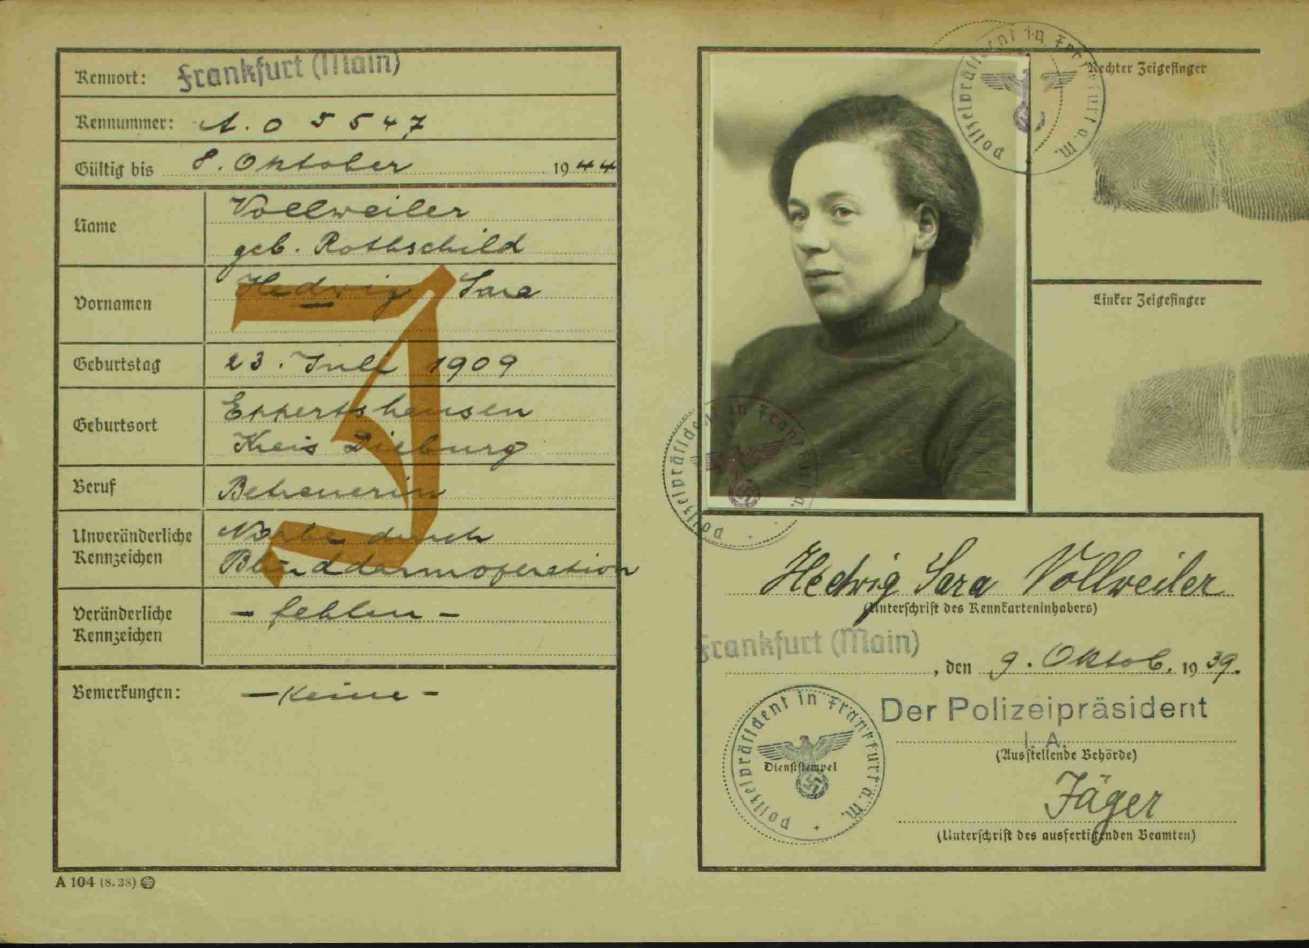 Kennort: Frankfurt (Main)
Kennummer: A. 0 5 5 4 7
Gültig bis 8. Oktober 1944
Name Vollweiler
geb. Rothschild
Vornamen Hedwig Sara
Geburtstag 23. Juli 1909
Geburtsort Eppertshausen
Kreis Dieburg
Beruf Betreuerin
Unveränderliche Kennzeichen Narbe durch
Blinddarmoperation
Veränderliche Kennzeichen - fehlen -
Bemerkungen: - Keine -
J
A 104 (8. 38)
Polizeipräsident in Frankfurt a. M.
Rechter Zeigefinger
Linker Zeigefinger
Polizeipräsident in Frankfurt a. M.
Hedwig Sara Vollweiler
(Unterschrift des Kennkarteninhabers)
Frankfurt (Main), den 9. Oktob. 1939.
Der Polizeipräsident
I. A.
(Ausstellende Behörde)
Polizeipräsident in Frankfurt a. M.
Dienststempel
Jäger
(Unterschrift des ausfertigenden Beamten)